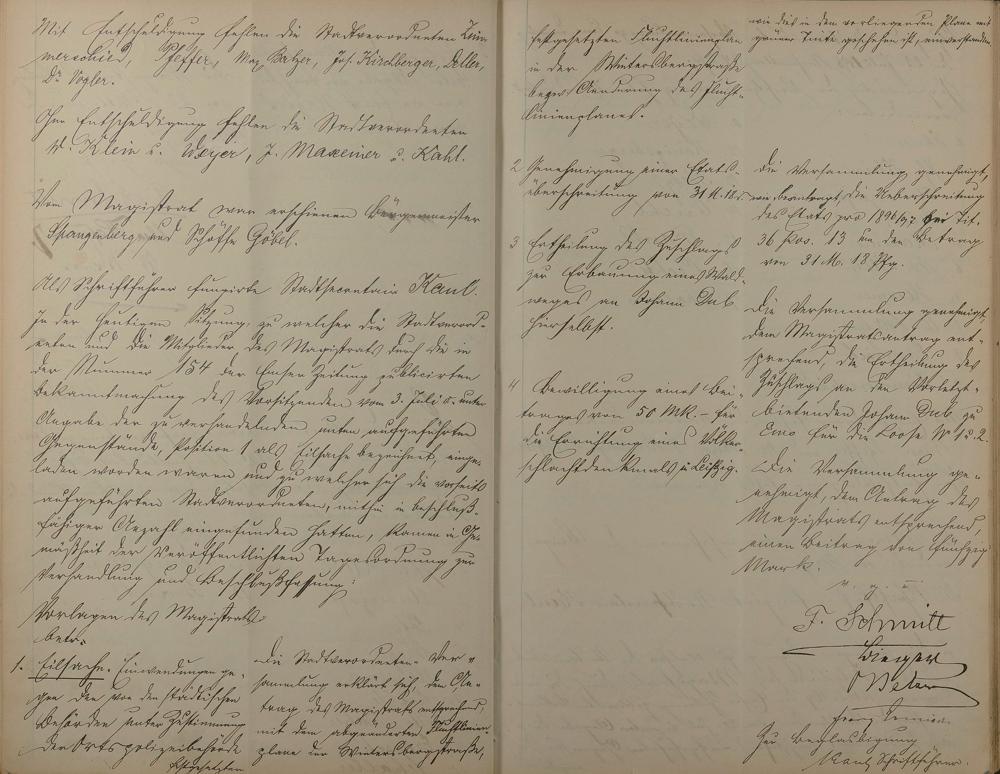 Mit Entschuldigung fehlen die Stadtverordneten Zim-
merschied, Pfeffer, Max Balzer, Jos. Kirchberger, Deller,
Dr. Vogler.
Ohne Entschuldigung fehlen die Stadtverordneten
W. Klein u. Weyer, J. Maxeiner u. Kahl.
Vom Magistrat war erschienen Bürgermeister
Spangenberg und Schöffe Göbel.
Als Schriftführer fungirte Stadtsecretair Kaul.
In der heutigen Sitzung, zu welcher die Stadtverord-
neten und die Mitglieder des Magistrats durch die in
der Nummer 154 der Emser Zeitung publicirten
Bekanntmachung des Vorsitzenden vom 3. Juli c. unter
Angabe der zu verhandelnden unten aufgeführten
Gegenstände, Position 1 als Eilsache bezeichnet, einge-
laden worden waren und zu welcher sich die vorseits
aufgeführten Stadtverordneten, mithin in beschluß-
fähiger Anzahl eingefunden hatten, kamen in Ge-
mäßheit der veröffentlichten Tagesordnung zur
Verhandlung und Beschlußfassung:
Vorlagen des Magistrats
betr.
1. Eilsache. Einwendungen ge-
gen den von den städtischen
Behörden unter Zustimmung
der Ortspolizeibehörde
festgesetzten
Die Stadtverordneten-Ver-
sammlung erklärt sich, dem An-
trag des Magistrats entsprechend
mit dem abgeänderten Fluchtlinien-
plane der Wintersbergstraße,
festgesetzten Fluchtlinienplan
in der Wintersbergstraße
bezw. Aenderung des Flucht-
linienplanes.
wie dieß in dem vorliegenden Plane mit
grüner Tinte geschehen ist, einverstanden
2 Genehmigung einer Etats-
überschreitung von 31 M. 18 Pf.
Die Versammlung genehmigt,
wie beantragt, die Ueberschreitung
des Etats pro 1896/97 bei Tit.
36 Pos. 13 um den Betrag
von 31 M. 18 Pfg.
3 Ertheilung des Zuschlags
zur Erbauung eines Wald-
weges an Johann Dub
hierselbst.
Die Versammlung genehmigt,
dem Magistratsantrag ent-
sprechend, die Ertheilung des
Zuschlags an den Vorletzt-
bietenden Johann Dub zu
Ems für die Loose No 1 u. 2.
4 Bewilligung eines Bei-
trages von 50 Mk. – für
die Errichtung eines Völker-
schlachtdenkmals zu Leipzig.
Die Versammlung ge-
nehmigt, dem Antrag des
Magistrats entsprechend
einen Beitrag von fünfzig
Mark.
v. g. u.
F. Schmitt
Zur Beglaubigung
Kaul, Schriftführer.